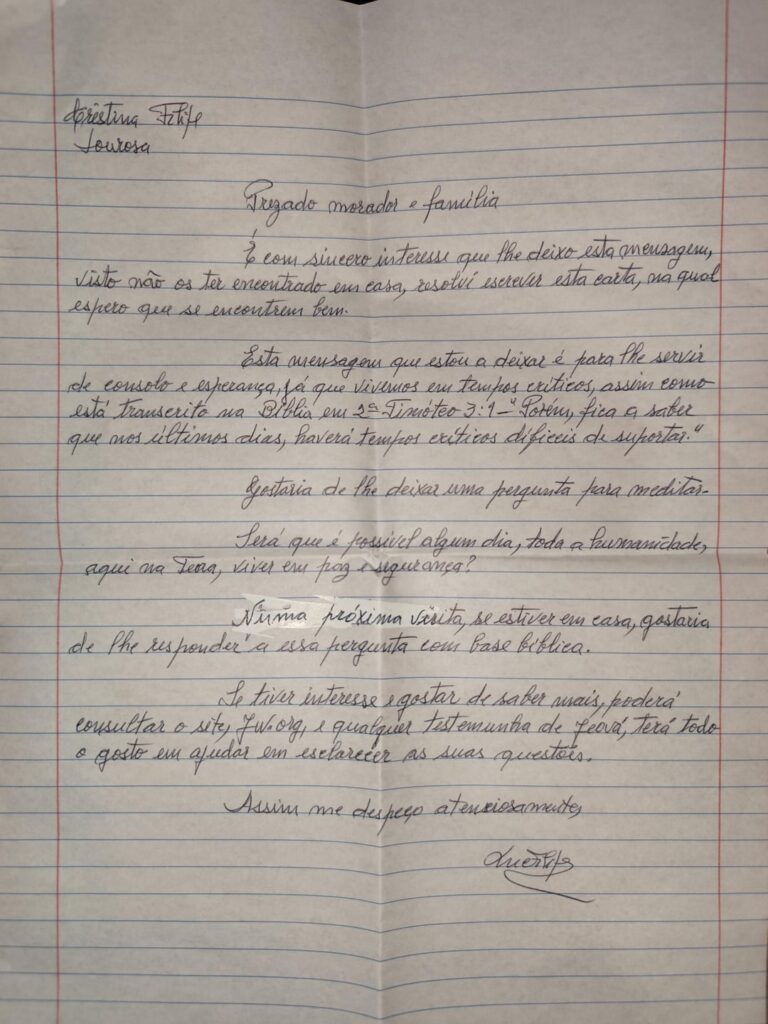 Cristina Filipe
Lourosa
Prezado morador e família
É com sincero interesse que lhe deixo esta mensagem,
visto não os ter encontrado em casa, resolvi escrever esta carta, na qual
espero que se encontrem bem.
Esta mensagem que estou a deixar é para lhe servir
de consolo e esperança, já que vivemos em tempos críticos, assim como
está transcrito na Bíblia em 2ª Timóteo 3:1 - "Porém, fica a saber
que nos últimos dias, haverá tempos críticos difíceis de suportar."
Gostaria de lhe deixar uma pergunta para meditar-
Será que é possível algum dia, toda a humanidade,
aqui na Terra, viver em paz e segurança?
Numa próxima visita, se estiver em casa, gostaria
de lhe responder a essa pergunta com base bíblica.
Se tiver interesse e gostar de saber mais, poderá
consultar o site, JW.org, e qualquer testemunha de Jeová, terá todo
o gosto em ajudar em esclarecer as suas questões.
Assim me despeço atenciosamente,